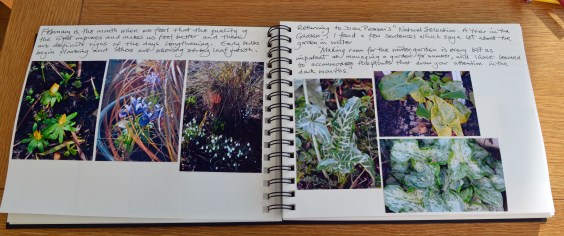 February is the month when we feel that the quality of
the light improves and makes us feel better and there
are definite signs of the days lengthening. Early bulbs
begin flowering and others are showing strong leaf growth.
Returning to Dan Pearson's "Natural Selection. A Year in the
Garden", I found a few sentences which says a lot about the
garden in winter.
"Making room for the winter garden is every bit as
important as managing a garden for summer, with spaces
to accommodate that draw your attention in the
dark months.